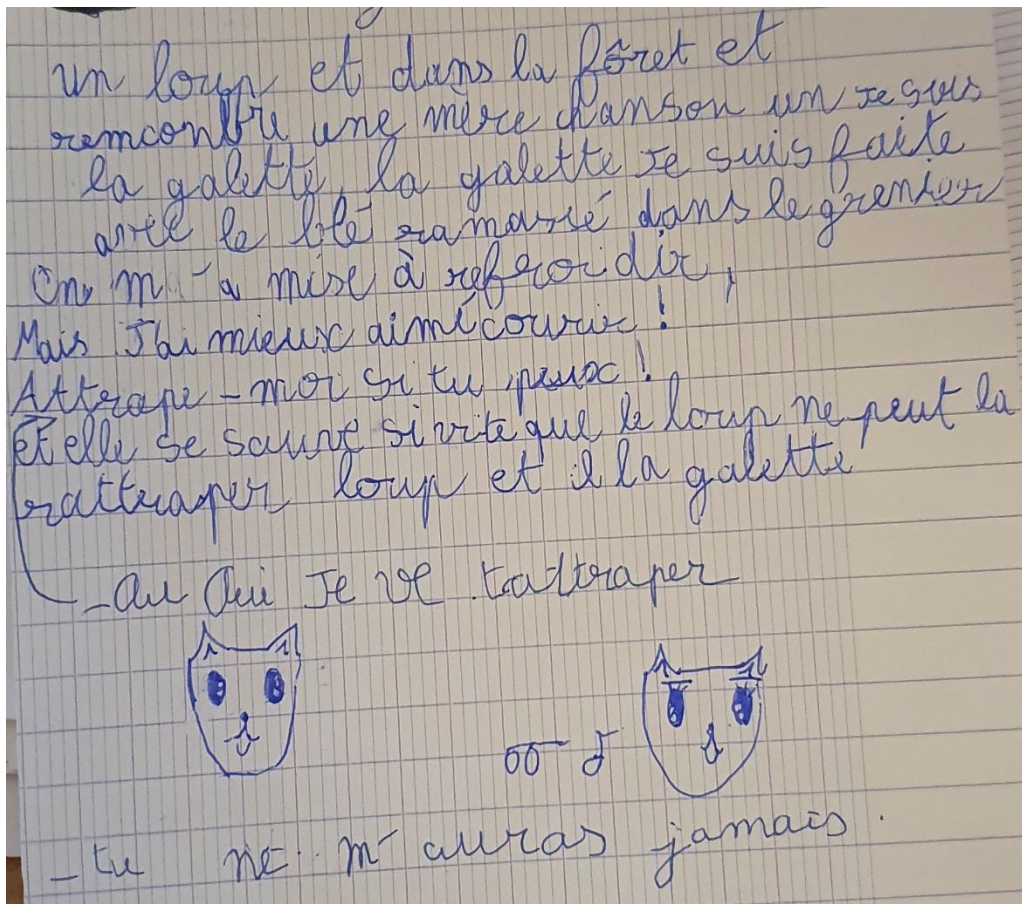 un loup et dans la fôret et
remcontre une mère chanson un Je suis
la galette, la galette Je suis faite
avec le blé ramassé dans le grenier
On m'a mise à refroidir,
Mais J'ai mieux aimé courir !
Attrape-moi si tu peux !
Et elle se sauve si vite que le loup ne peut la
rattraper loup et a la galette
-au Oui Je ve tattraper
-tu ne m'auras jamais.